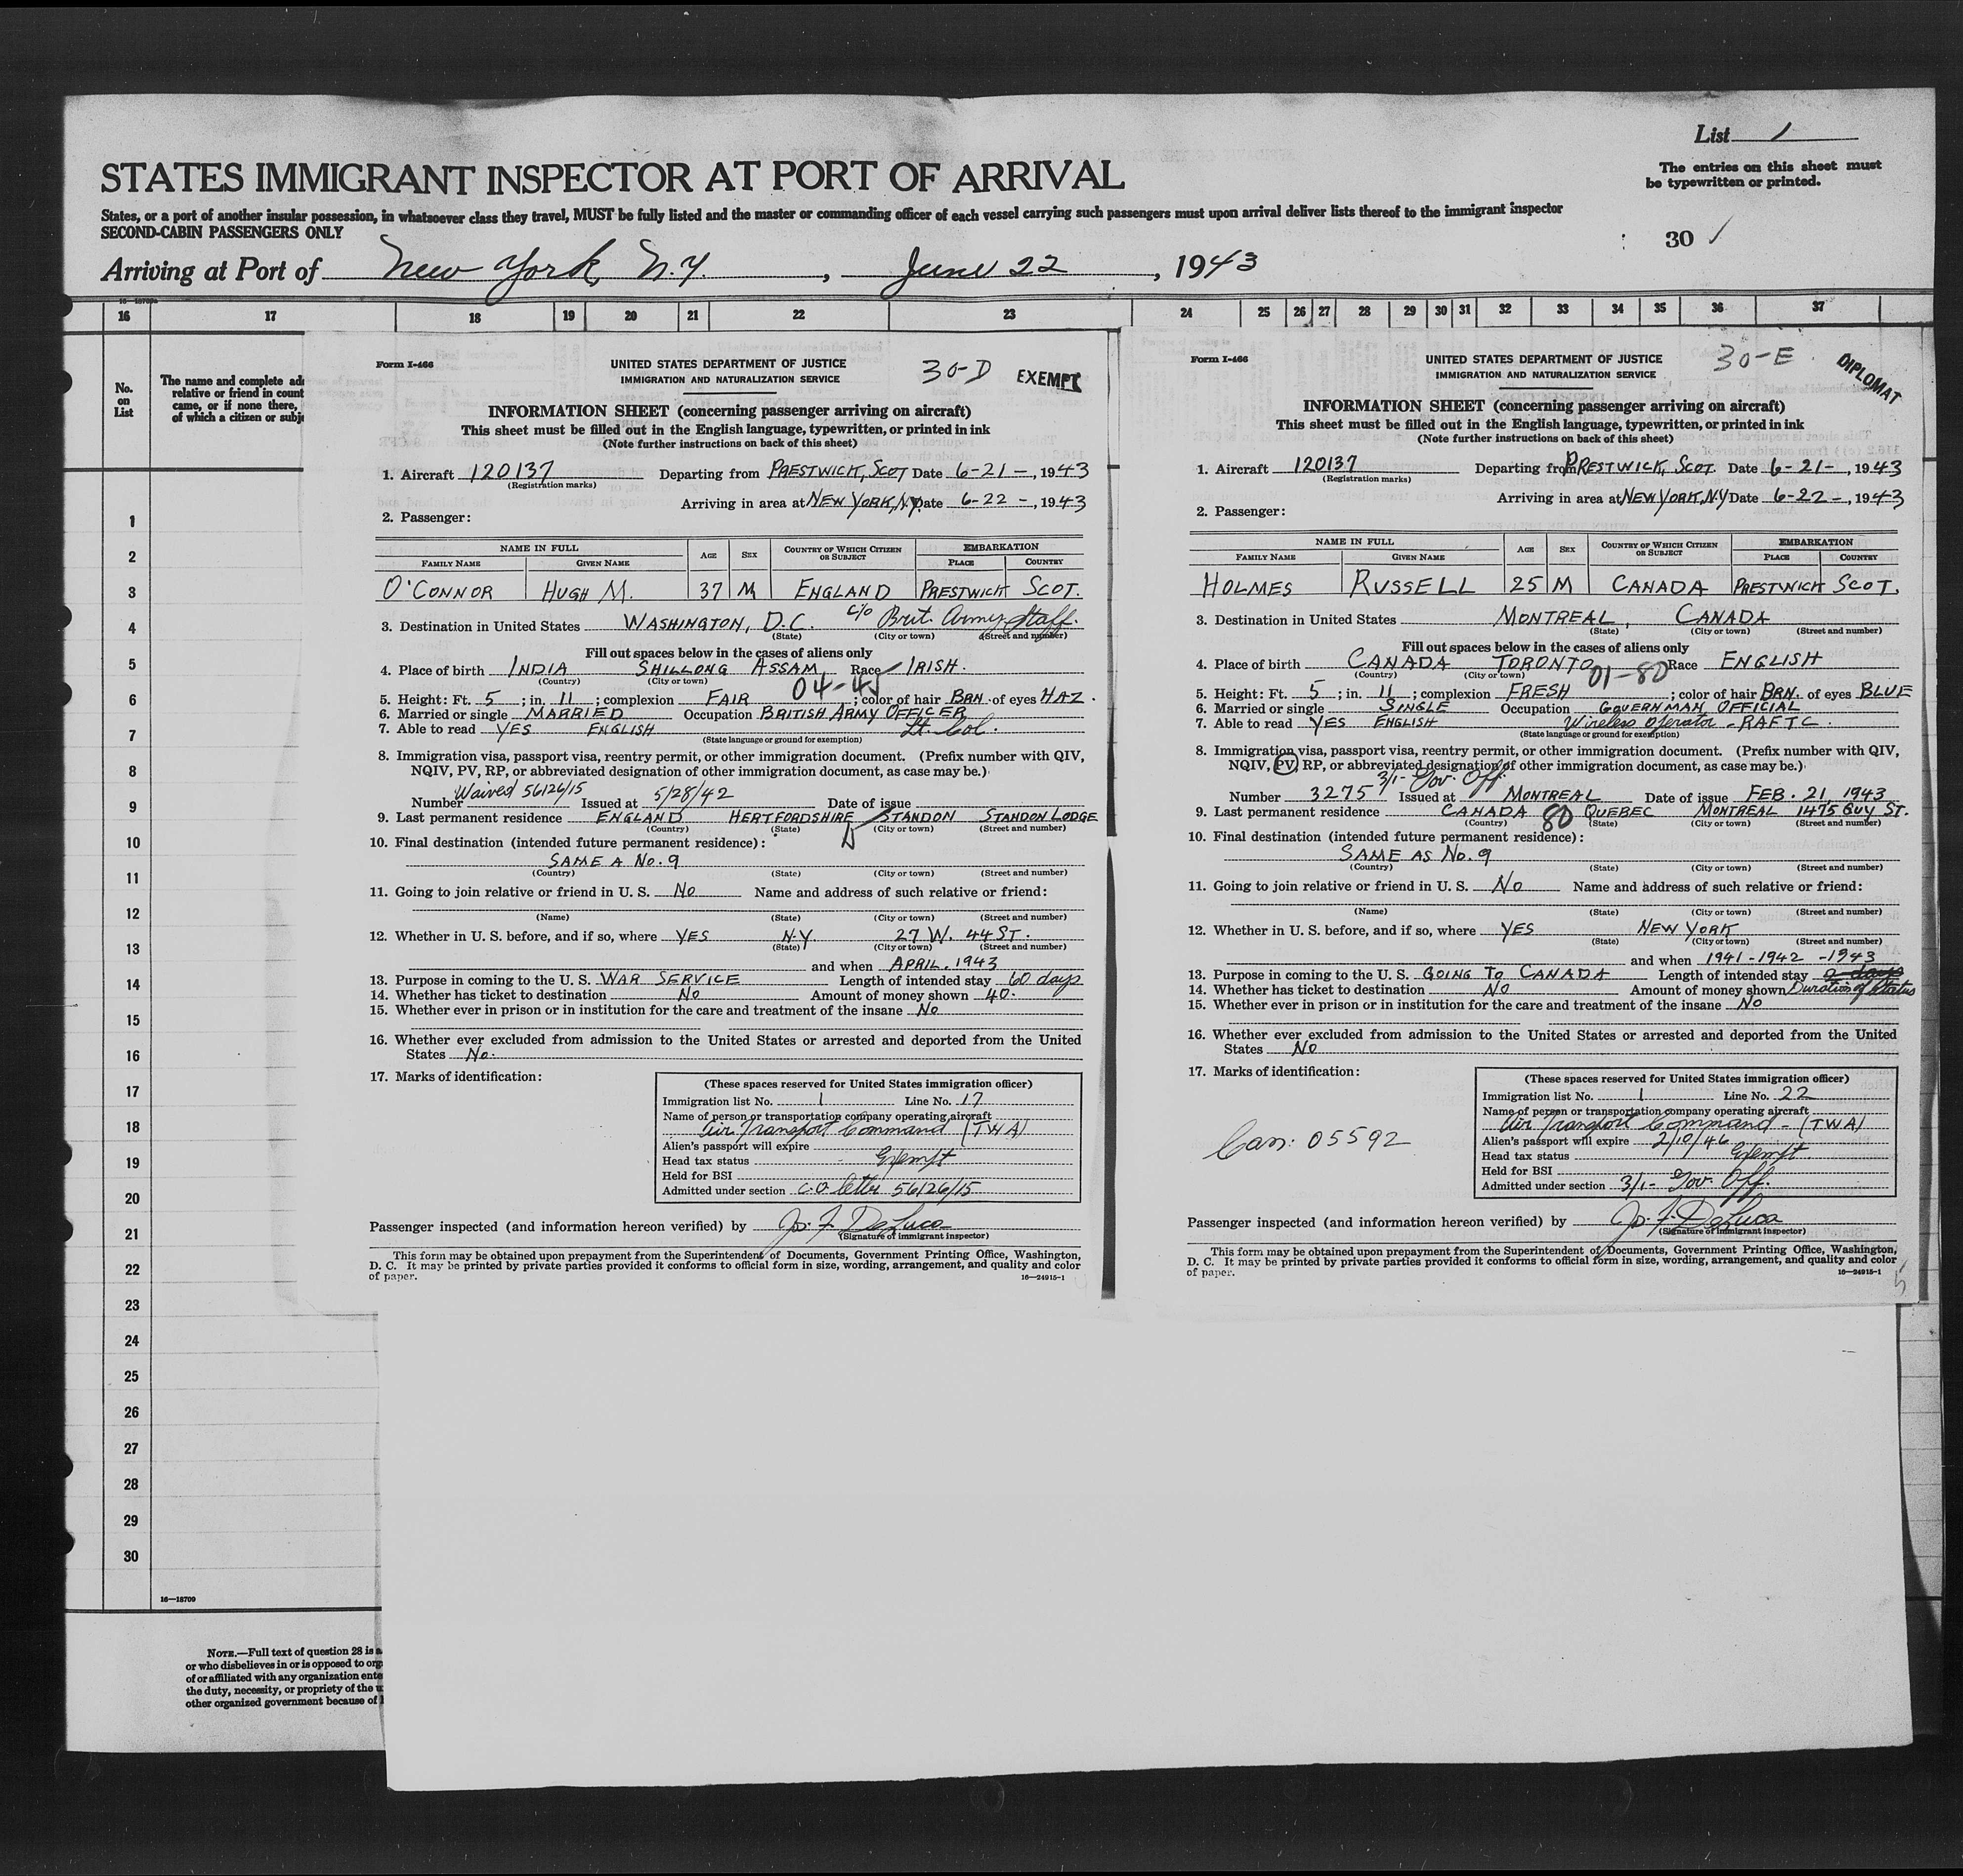 List 1
STATES IMMIGRANT INSPECTOR AT PORT OF ARRIVAL
The entries on this sheet must
be typewritten or printed.
States, or a port of another insular possession, in whatsoever class they travel, MUST be fully listed and the master or commanding officer of each vessel carrying such passengers must upon arrival deliver lists thereof to the immigrant inspector
SECOND-CABIN PASSENGERS ONLY
30 1
Arriving at Port of New York, N.Y., June 22, 1943
16 17 18 19 20 21 22 23 24 25 26 27 28 29 30 31 32 33 34 35 36 37
No.
on
List
The name and complete add
relative or friend in count
came, or if none there,
of which a citizen or subje
Form I-466
UNITED STATES DEPARTMENT OF JUSTICE
IMMIGRATION AND NATURALIZATION SERVICE
30-D EXEMPT
INFORMATION SHEET (concerning passenger arriving on aircraft)
This sheet must be filled out in the English language, typewritten, or printed in ink
(Note further instructions on back of this sheet)
1. Aircraft 120137 Departing from PRESTWICK, SCOT Date 6-21-, 1943
(Registration marks)
Arriving in area at NEW YORK, N.Y. Date 6-22-, 1943
2. Passenger:
NAME IN FULL AGE SEX COUNTRY OF WHICH CITIZEN OR SUBJECT EMBARKATION
FAMILY NAME GIVEN NAME PLACE COUNTRY
O'CONNOR HUGH M. 37 M ENGLAND PRESTWICK SCOT.
3. Destination in United States WASHINGTON, D.C. c/o Brit. Army Staff.
(State) (City or town) (Street and number)
Fill out spaces below in the cases of aliens only
4. Place of birth INDIA SHILLONG ASSAM Race IRISH.
(Country) (City or town)
04-45
5. Height: Ft. 5; in. 11; complexion FAIR; color of hair BRN. of eyes HAZ.
6. Married or single MARRIED Occupation BRITISH ARMY OFFICER
7. Able to read YES ENGLISH Lt. Col.
(State language or ground for exemption)
8. Immigration visa, passport visa, reentry permit, or other immigration document. (Prefix number with QIV,
NQIV, PV, RP, or abbreviated designation of other immigration document, as case may be.)
Number Waived 56126/15 Issued at 5/28/42 Date of issue
9. Last permanent residence ENGLAND HERTFORDSHIRE STANDON STANDON LODGE
(Country) (State) (City or town) (Street and number)
10. Final destination (intended future permanent residence):
SAME A No. 9
(Country) (State) (City or town) (Street and number)
11. Going to join relative or friend in U. S. No Name and address of such relative or friend:
(Name) (State) (City or town) (Street and number)
12. Whether in U. S. before, and if so, where YES N.Y. 27 W. 44 ST.
(State) (City or town) (Street and number)
and when APRIL. 1943
13. Purpose in coming to the U. S. WAR SERVICE Length of intended stay 60 days
14. Whether has ticket to destination No Amount of money shown 40.
15. Whether ever in prison or in institution for the care and treatment of the insane No
16. Whether ever excluded from admission to the United States or arrested and deported from the United
States No.
17. Marks of identification:
(These spaces reserved for United States immigration officer)
Immigration list No. 1 Line No. 17
Name of person or transportation company operating aircraft
Air Transport Command (TWA)
Alien's passport will expire
Head tax status Exempt
Held for BSI
Admitted under section C.O. letter 56126/15
Passenger inspected (and information hereon verified) by Jo. F. DeLuca
(Signature of immigrant inspector)
This form may be obtained upon prepayment from the Superintendent of Documents, Government Printing Office, Washington,
D. C. It may be printed by private parties provided it conforms to official form in size, wording, arrangement, and quality and color
of paper. 16—24915-1
Form I-466
UNITED STATES DEPARTMENT OF JUSTICE
IMMIGRATION AND NATURALIZATION SERVICE
30-E DIPLOMAT
INFORMATION SHEET (concerning passenger arriving on aircraft)
This sheet must be filled out in the English language, typewritten, or printed in ink
(Note further instructions on back of this sheet)
1. Aircraft 120137 Departing from PRESTWICK, SCOT. Date 6-21-, 1943
(Registration marks)
Arriving in area at NEW YORK, N.Y Date 6-22-, 1943
2. Passenger:
NAME IN FULL AGE SEX COUNTRY OF WHICH CITIZEN OR SUBJECT EMBARKATION
FAMILY NAME GIVEN NAME PLACE COUNTRY
HOLMES RUSSELL 25 M CANADA PRESTWICK SCOT.
3. Destination in United States MONTREAL, CANADA
(State) (City or town) (Street and number)
Fill out spaces below in the cases of aliens only
4. Place of birth CANADA TORONTO Race ENGLISH
(Country) (City or town)
01-80
5. Height: Ft. 5; in. 11; complexion FRESH; color of hair BRN. of eyes BLUE
6. Married or single SINGLE Occupation GOVERNMAN OFFICIAL
7. Able to read YES ENGLISH Wireless Operator - RAFTC.
(State language or ground for exemption)
8. Immigration visa, passport visa, reentry permit, or other immigration document. (Prefix number with QIV,
NQIV, PV, RP, or abbreviated designation of other immigration document, as case may be.)
3/1- Gov. Off.
Number 3275 Issued at MONTREAL Date of issue FEB. 21, 1943
9. Last permanent residence CANADA 80 QUEBEC MONTREAL 1475 GUY ST.
(Country) (State) (City or town) (Street and number)
10. Final destination (intended future permanent residence):
SAME AS No. 9
(Country) (State) (City or town) (Street and number)
11. Going to join relative or friend in U. S. No Name and address of such relative or friend:
(Name) (State) (City or town) (Street and number)
12. Whether in U. S. before, and if so, where YES NEW YORK
(State) (City or town) (Street and number)
and when 1941-1942-1943
13. Purpose in coming to the U. S. GOING TO CANADA Length of intended stay 2 days
14. Whether has ticket to destination NO Amount of money shown Duration of Status
15. Whether ever in prison or in institution for the care and treatment of the insane No
16. Whether ever excluded from admission to the United States or arrested and deported from the United
States NO
17. Marks of identification:
Can: 05592
(These spaces reserved for United States immigration officer)
Immigration list No. 1 Line No. 22
Name of person or transportation company operating aircraft
Air Transport Command - (TWA)
Alien's passport will expire 2/10/46
Head tax status Exempt
Held for BSI
Admitted under section 3/1- Gov. Off.
Passenger inspected (and information hereon verified) by Jo. F. DeLuca
(Signature of immigrant inspector)
This form may be obtained upon prepayment from the Superintendent of Documents, Government Printing Office, Washington,
D. C. It may be printed by private parties provided it conforms to official form in size, wording, arrangement, and quality and color
of paper. 16—24915-1
5
1
2
3
4
5
6
7
8
9
10
11
12
13
14
15
16
17
18
19
20
21
22
23
24
25
26
27
28
29
30
16—18709
NOTE.—Full text of question 28 is a
or who disbelieves in or is opposed to org
of or affiliated with any organization ente
the duty, necessity, or propriety of the u
other organized government because of